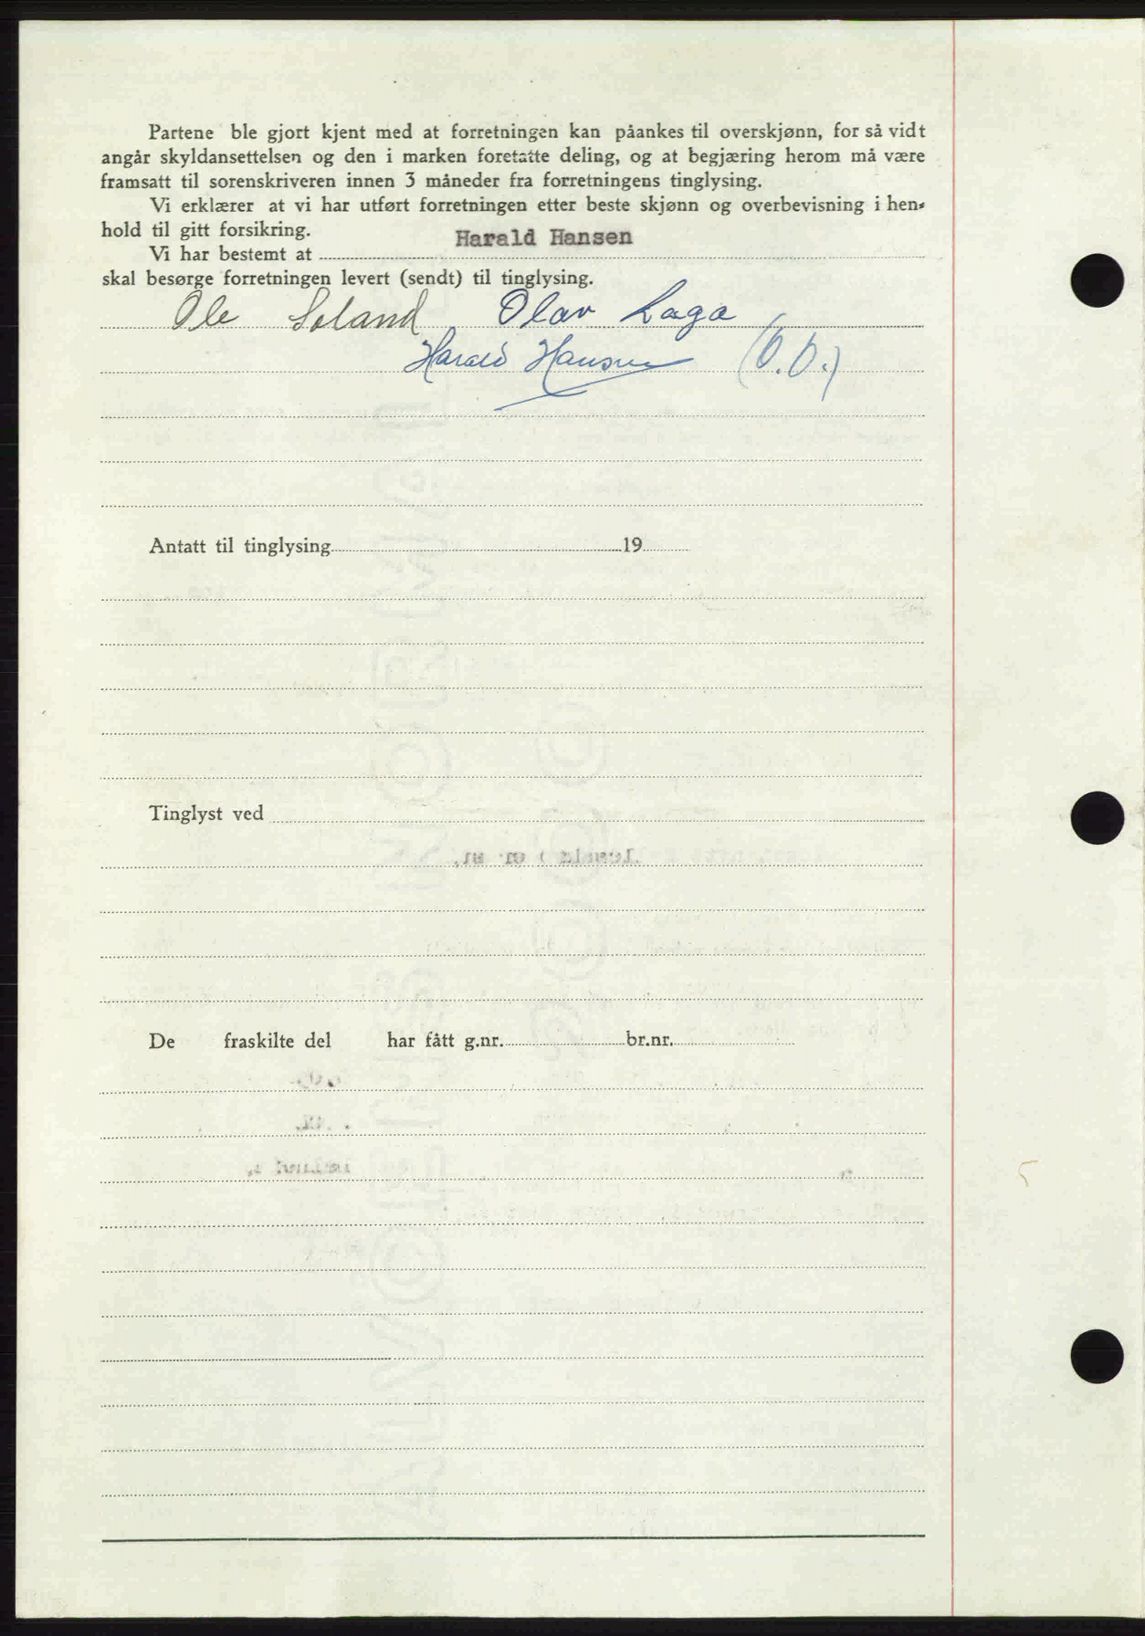 Partene ble gjort kjent med at forretningen kan påankes til overskjønn, for så vidt
angår skyldansettelsen og den i marken foretatte deling, og at begjæring herom må være
framsatt til sorenskriveren innen 3 måneder fra forretningens tinglysing.
Vi erklærer at vi har utført forretningen etter beste skjønn og overbevisning i hen-
hold til gitt forsikring.
Vi har bestemt at Harald Hansen
skal besørge forretningen levert (sendt) til tinglysing.
Ole Soland Olav Laga
Harald Hansen (O.O.)
Antatt til tinglysing 19
Tinglyst ved
De fraskilte del har fått g.nr. br.nr.